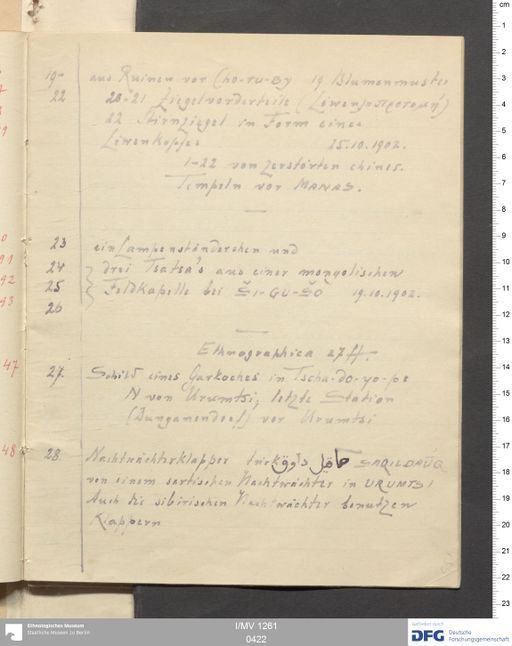 19- aus Ruinen vor CHO-TU-BY 19 Blumenmuster
22 20-21 Ziegelvorderteile (Löwen προτομή)
22 Stirnziegel in Form eines
Löwenkopfes 15.10.1902.
1-22 von zerstörten chines.
Tempeln vor MANAS.
23 ein Lampenständerchen und
24 drei Tsatsa's aus einer mongolischen
25 Feldkapelle bei ŠI-GU-ŠO 19.10.1902.
26
Ethnographica 27 ff.
47 27. Schild eines Garkoches in Tscha-do-yo-pe
N von Urumtsi, letzte Station
(Dungamendorf) vor Urumtsi
48 28 Nachtwächterklapper türk. SAQILDAUQ
von einem sartischen Nachtwächter in URUMTSI
Auch die sibirischen Nachtwächter benutzen
Klappern
cm
1
2
3
4
5
6
7
8
9
10
11
12
13
14
15
16
17
18
19
20
21
22
23
Ethnologisches Museum
Staatliche Museen zu Berlin
I/MV 1261
0422
Gefördert durch
DFG Deutsche
Forschungsgemeinschaft